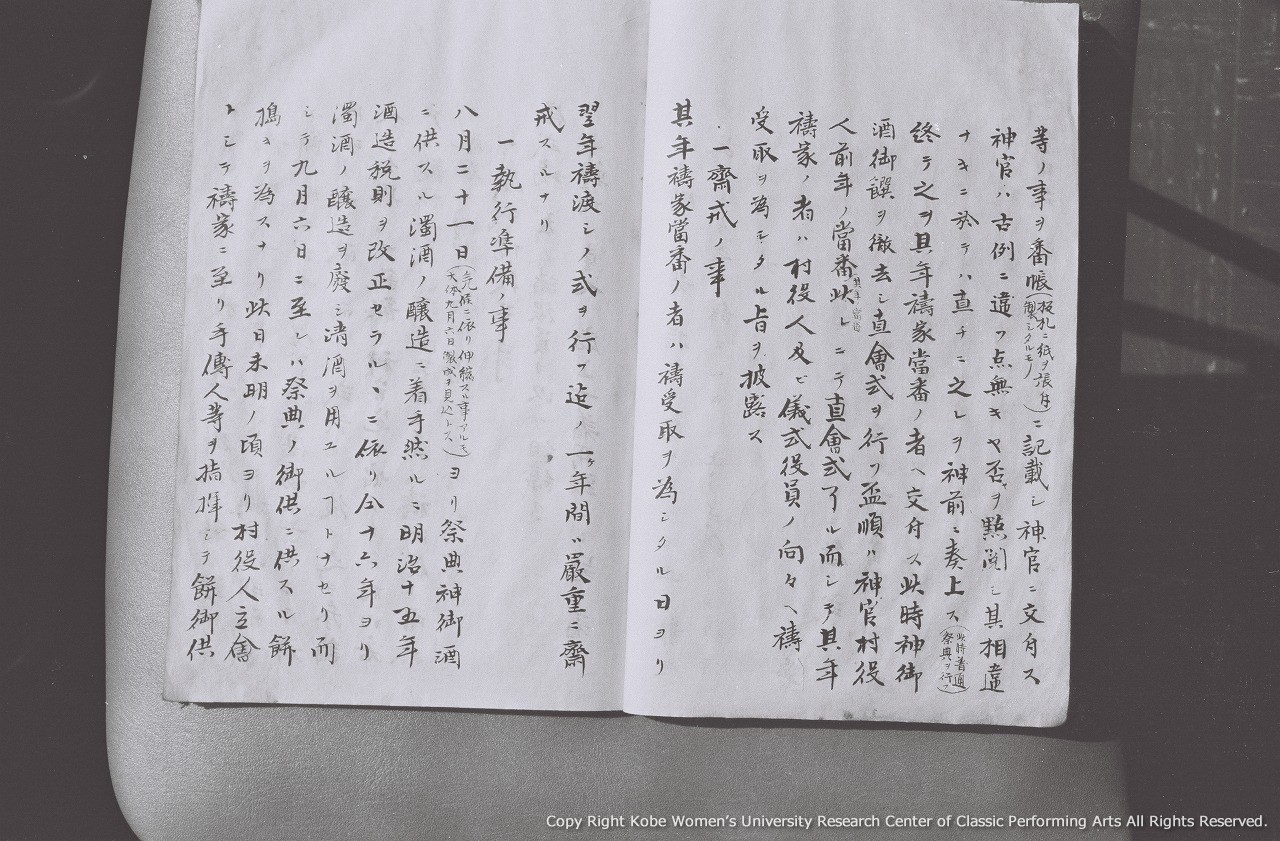 等ノ事ヲ番帳(板札ニ紙ヲ張付製シタルモノ)ニ記載シ神官ニ交付ス
神官ハ古例ニ違フ点無キヤ否ヲ點閲シ其相違
ナキニ於テハ直チニ之レヲ神前ニ奏上ス(此時普通祭典ヲ行フ)
終テ之ヲ其年禱家當番ノ者ヘ交付ス此時神御
酒御饌ヲ撤去シ直會式ヲ行フ盃順ハ神官村役
人前年ノ當番此レニテ直會式了ル而シテ其年
禱家ノ者ハ村役人及ビ儀式役員ノ向々ヘ禱
受取ヲ為シタル旨ヲ披露ス
一齋戒ノ事
其年禱家當番ノ者ハ禱受取ヲ為シタル日ヨリ
翌年禱渡シノ式ヲ行フ迄ノ一ヶ年間ハ嚴重ニ齋
戒スルナリ
一執行準備ノ事
八月二十一日(気候ニ依リ伸縮スル事アルモ大体九月六日釀成ヲ見込トス)ヨリ祭典神御酒
ニ供スル濁酒ノ醸造ニ着手然ルニ明治十五年
酒造税則ヲ改正セラルヽニ依リ仝十六年ヨリ
濁酒ノ醸造ヲ廢シ清酒ヲ用ユルヿトナセリ而
シテ九月六日ニ至レハ祭典ノ御供ニ供スル餅
搗キヲ為スナリ此日未明ノ頃ヨリ村役人立會
トシテ禱家ニ至リ手傳人等ヲ指揮シテ餅御供
Copy Right Kobe Women's University Research Center of Classic Performing Arts All Rights Reserved.